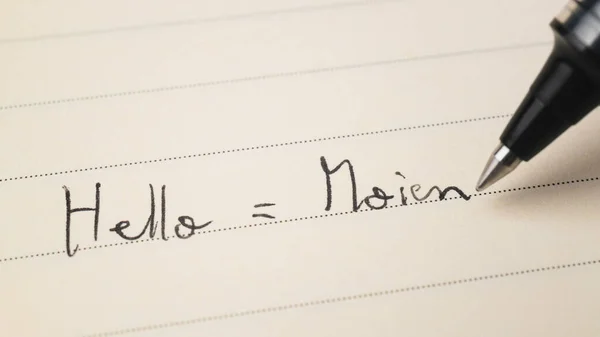 Hello = Moien